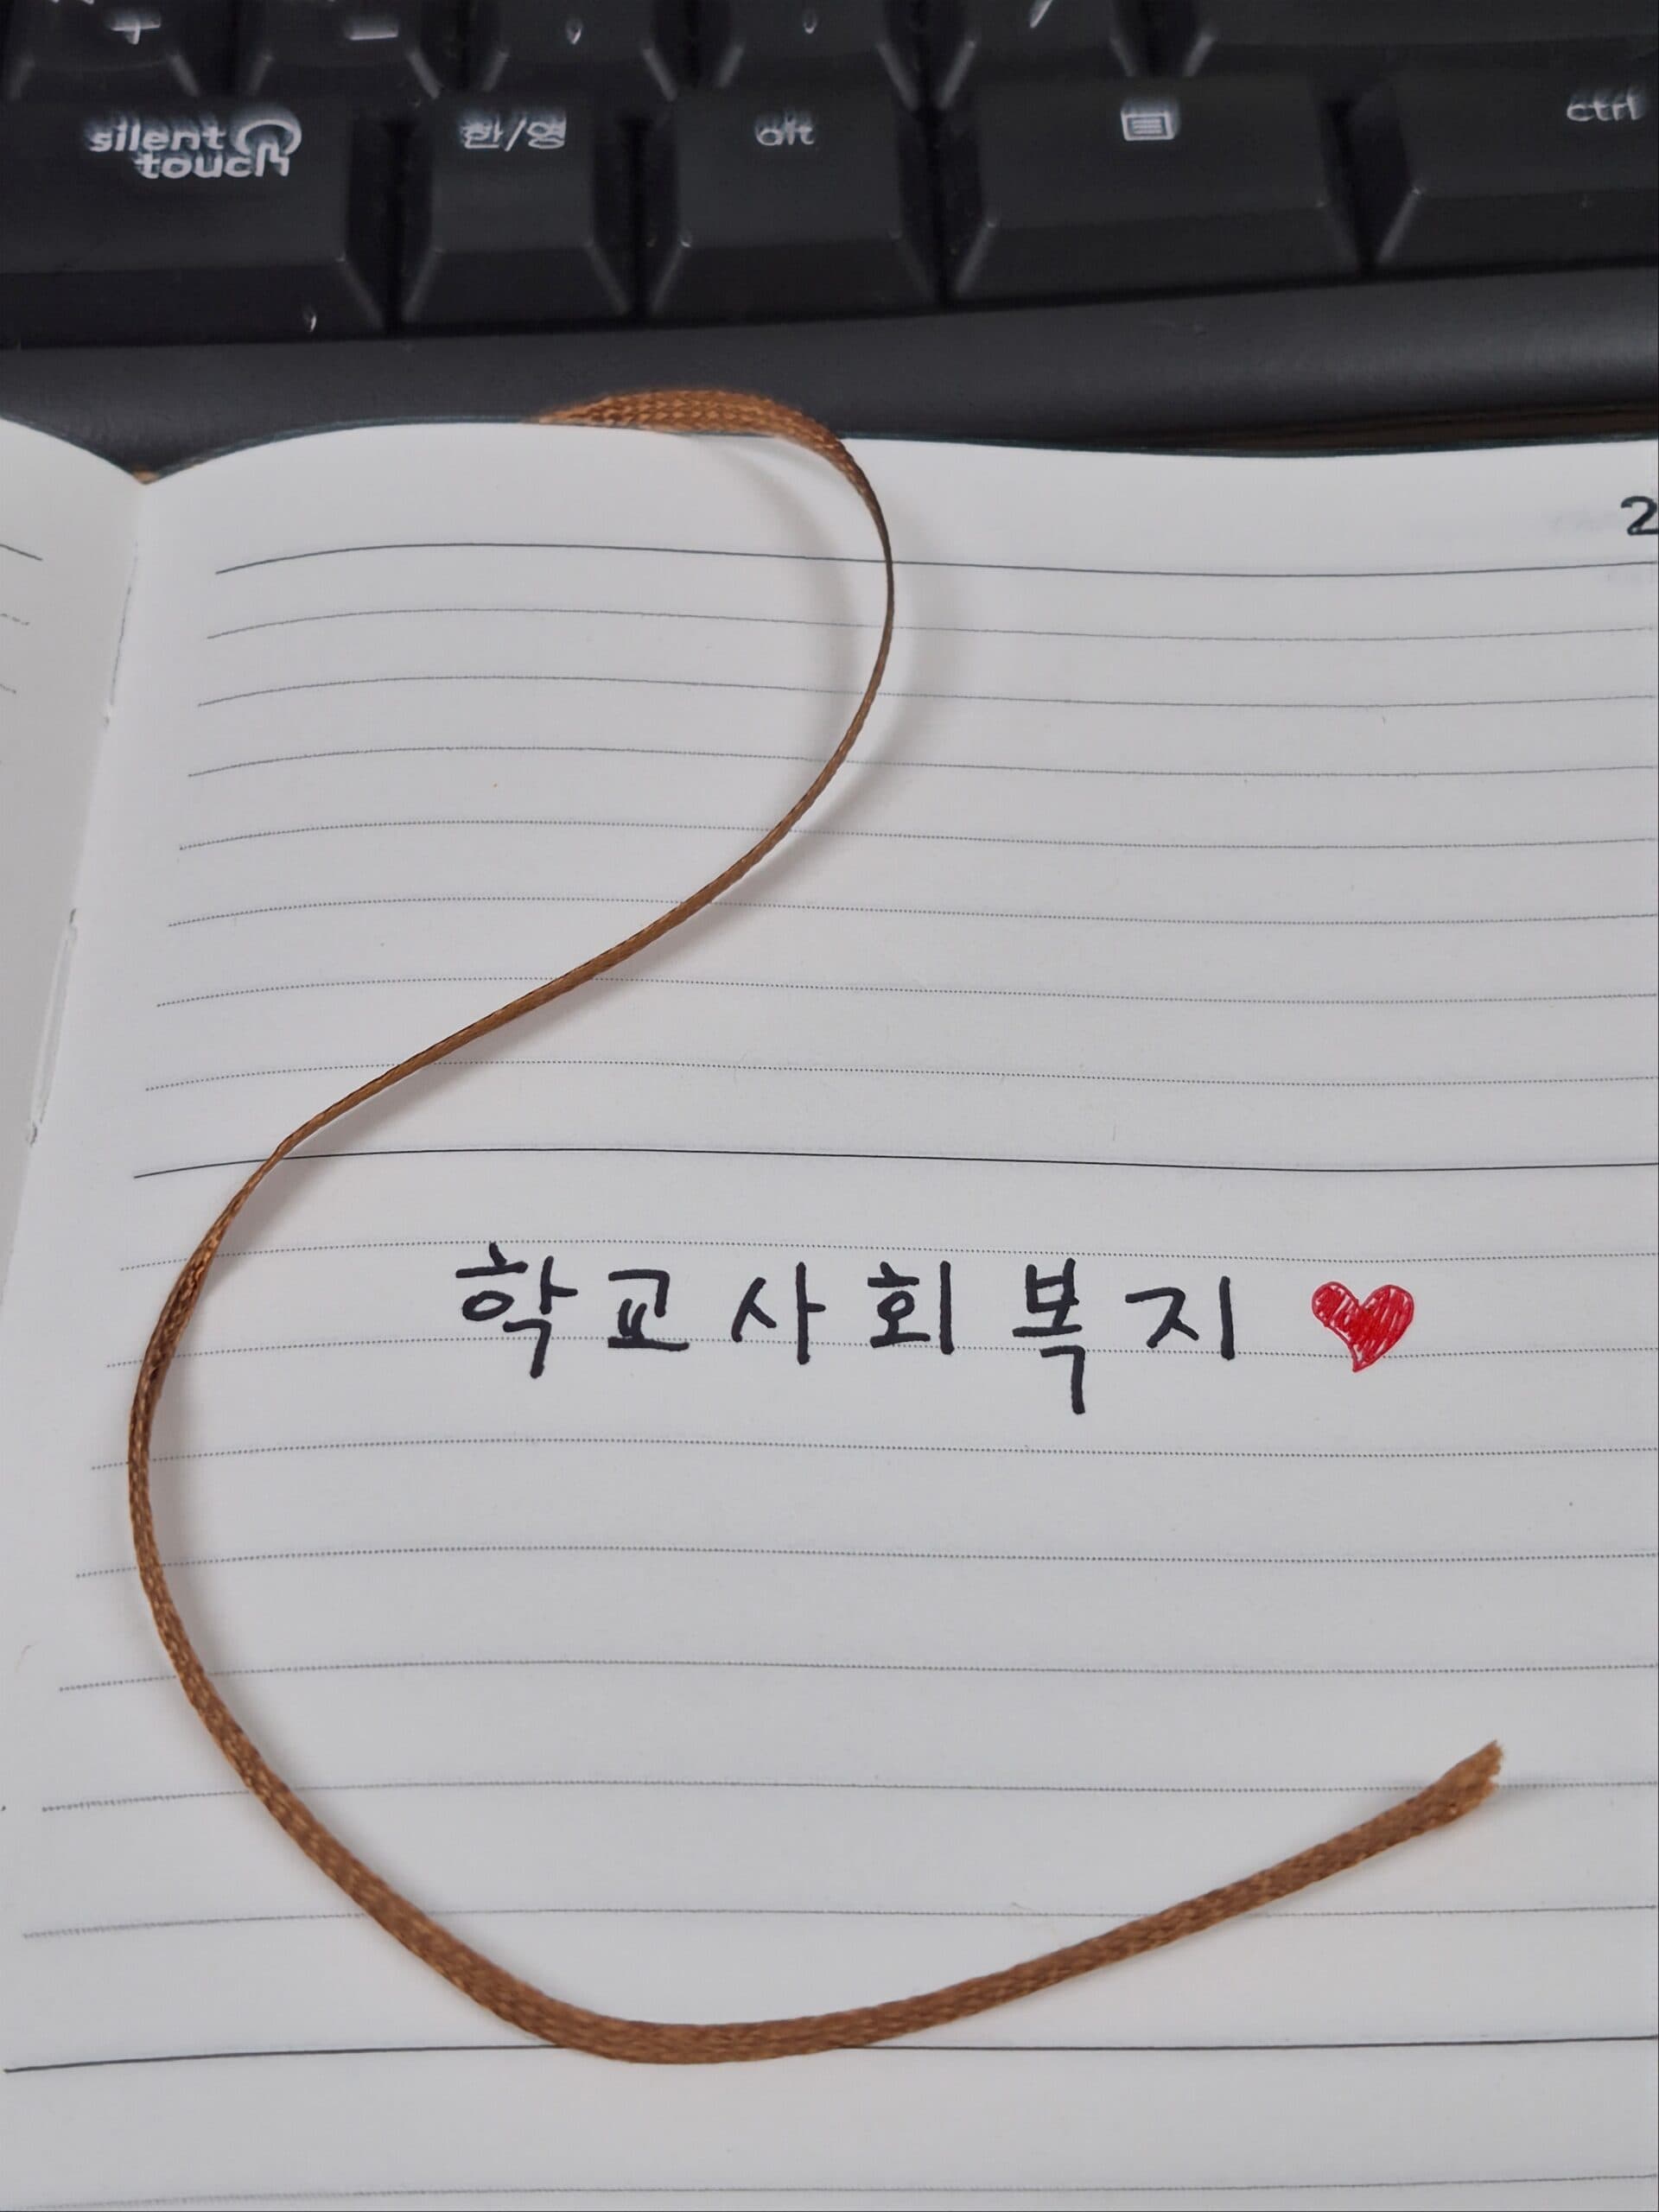 silent
touch
한/영
alt
ctrl
2
학교사회복지